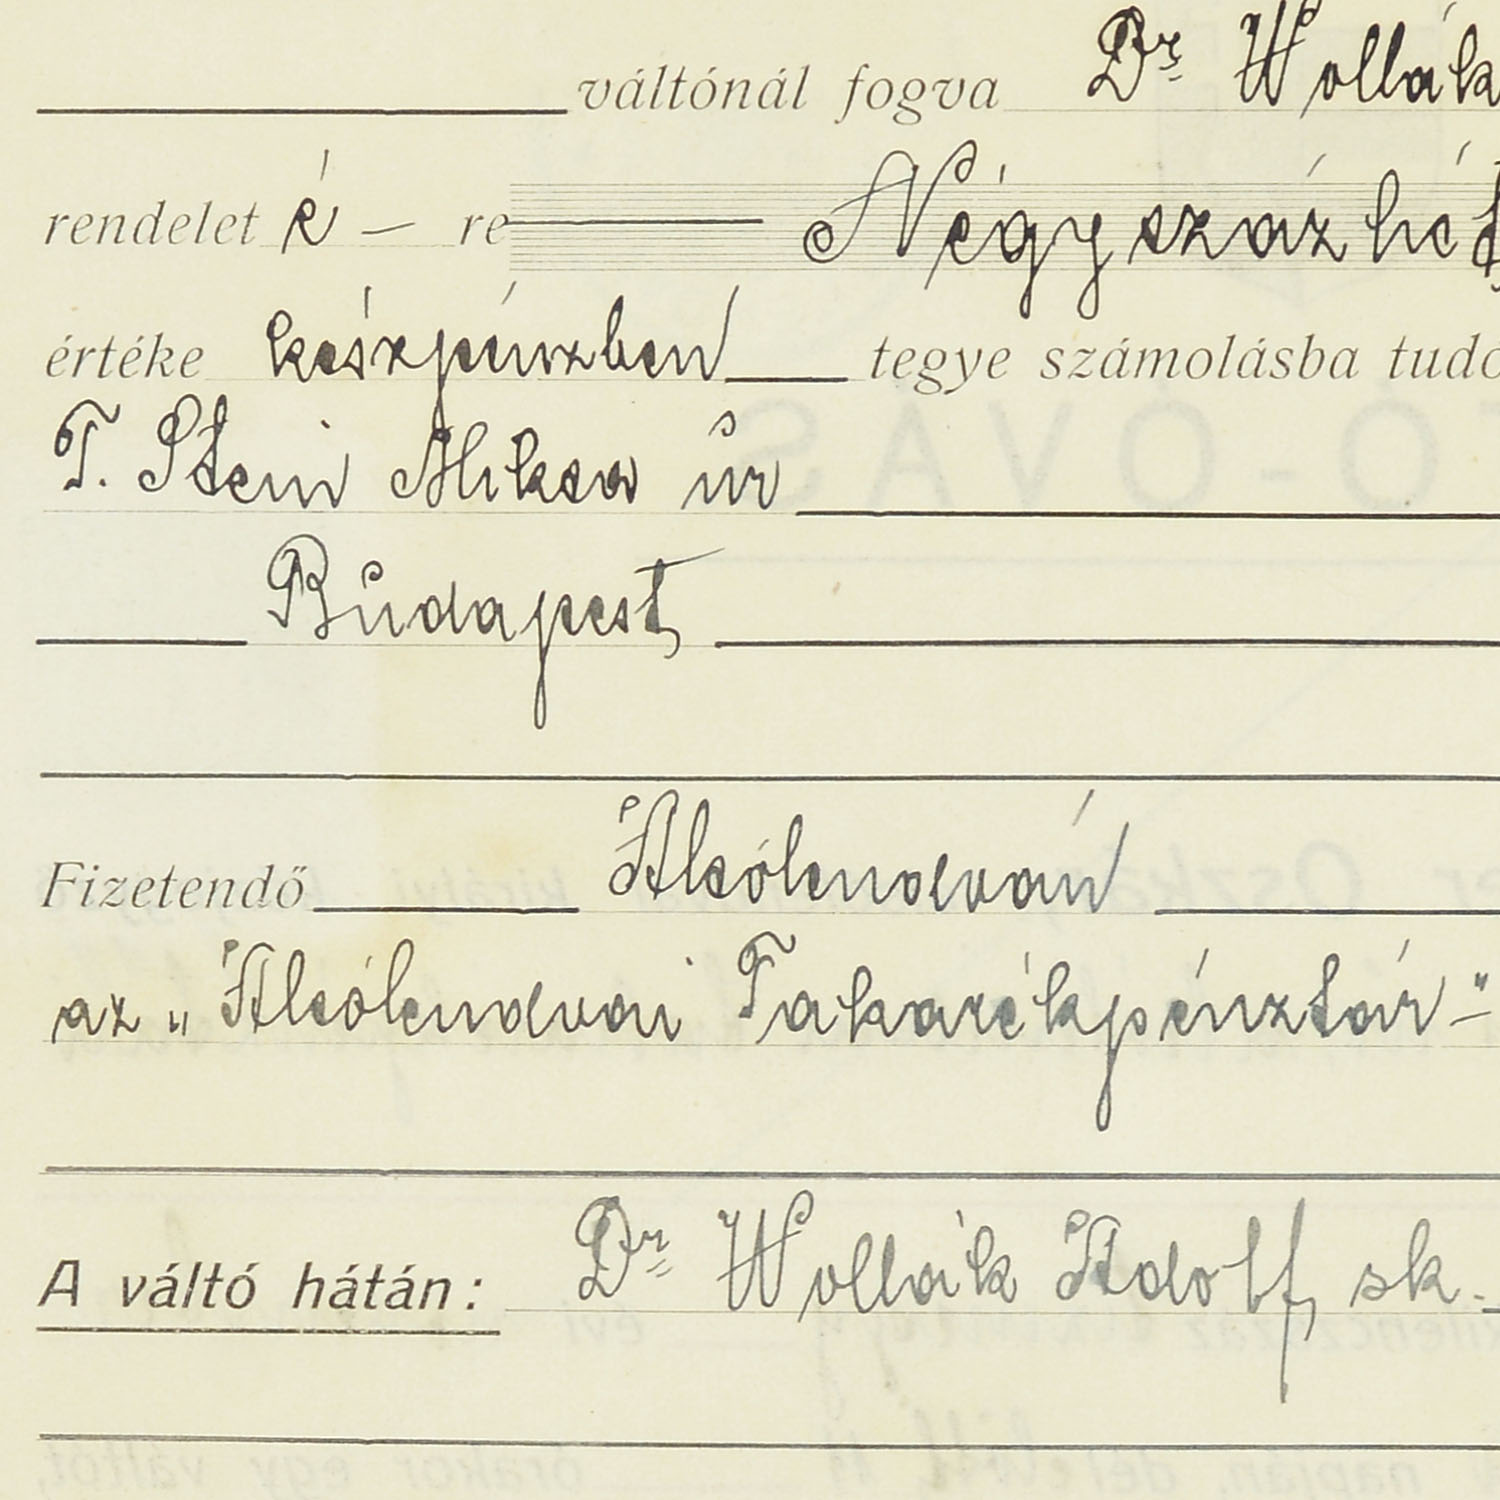 váltónál fogva Dr Wollák
rendelet é – re Négyszázhét
értéke készpénzben tegye számolásba tudó
T. Stein Miksa úr
Budapest
Fizetendő Alsólendván
az „Alsólendvai Takarékpénztár-"
A váltó hátán: Dr Wollák Adolf, sk.